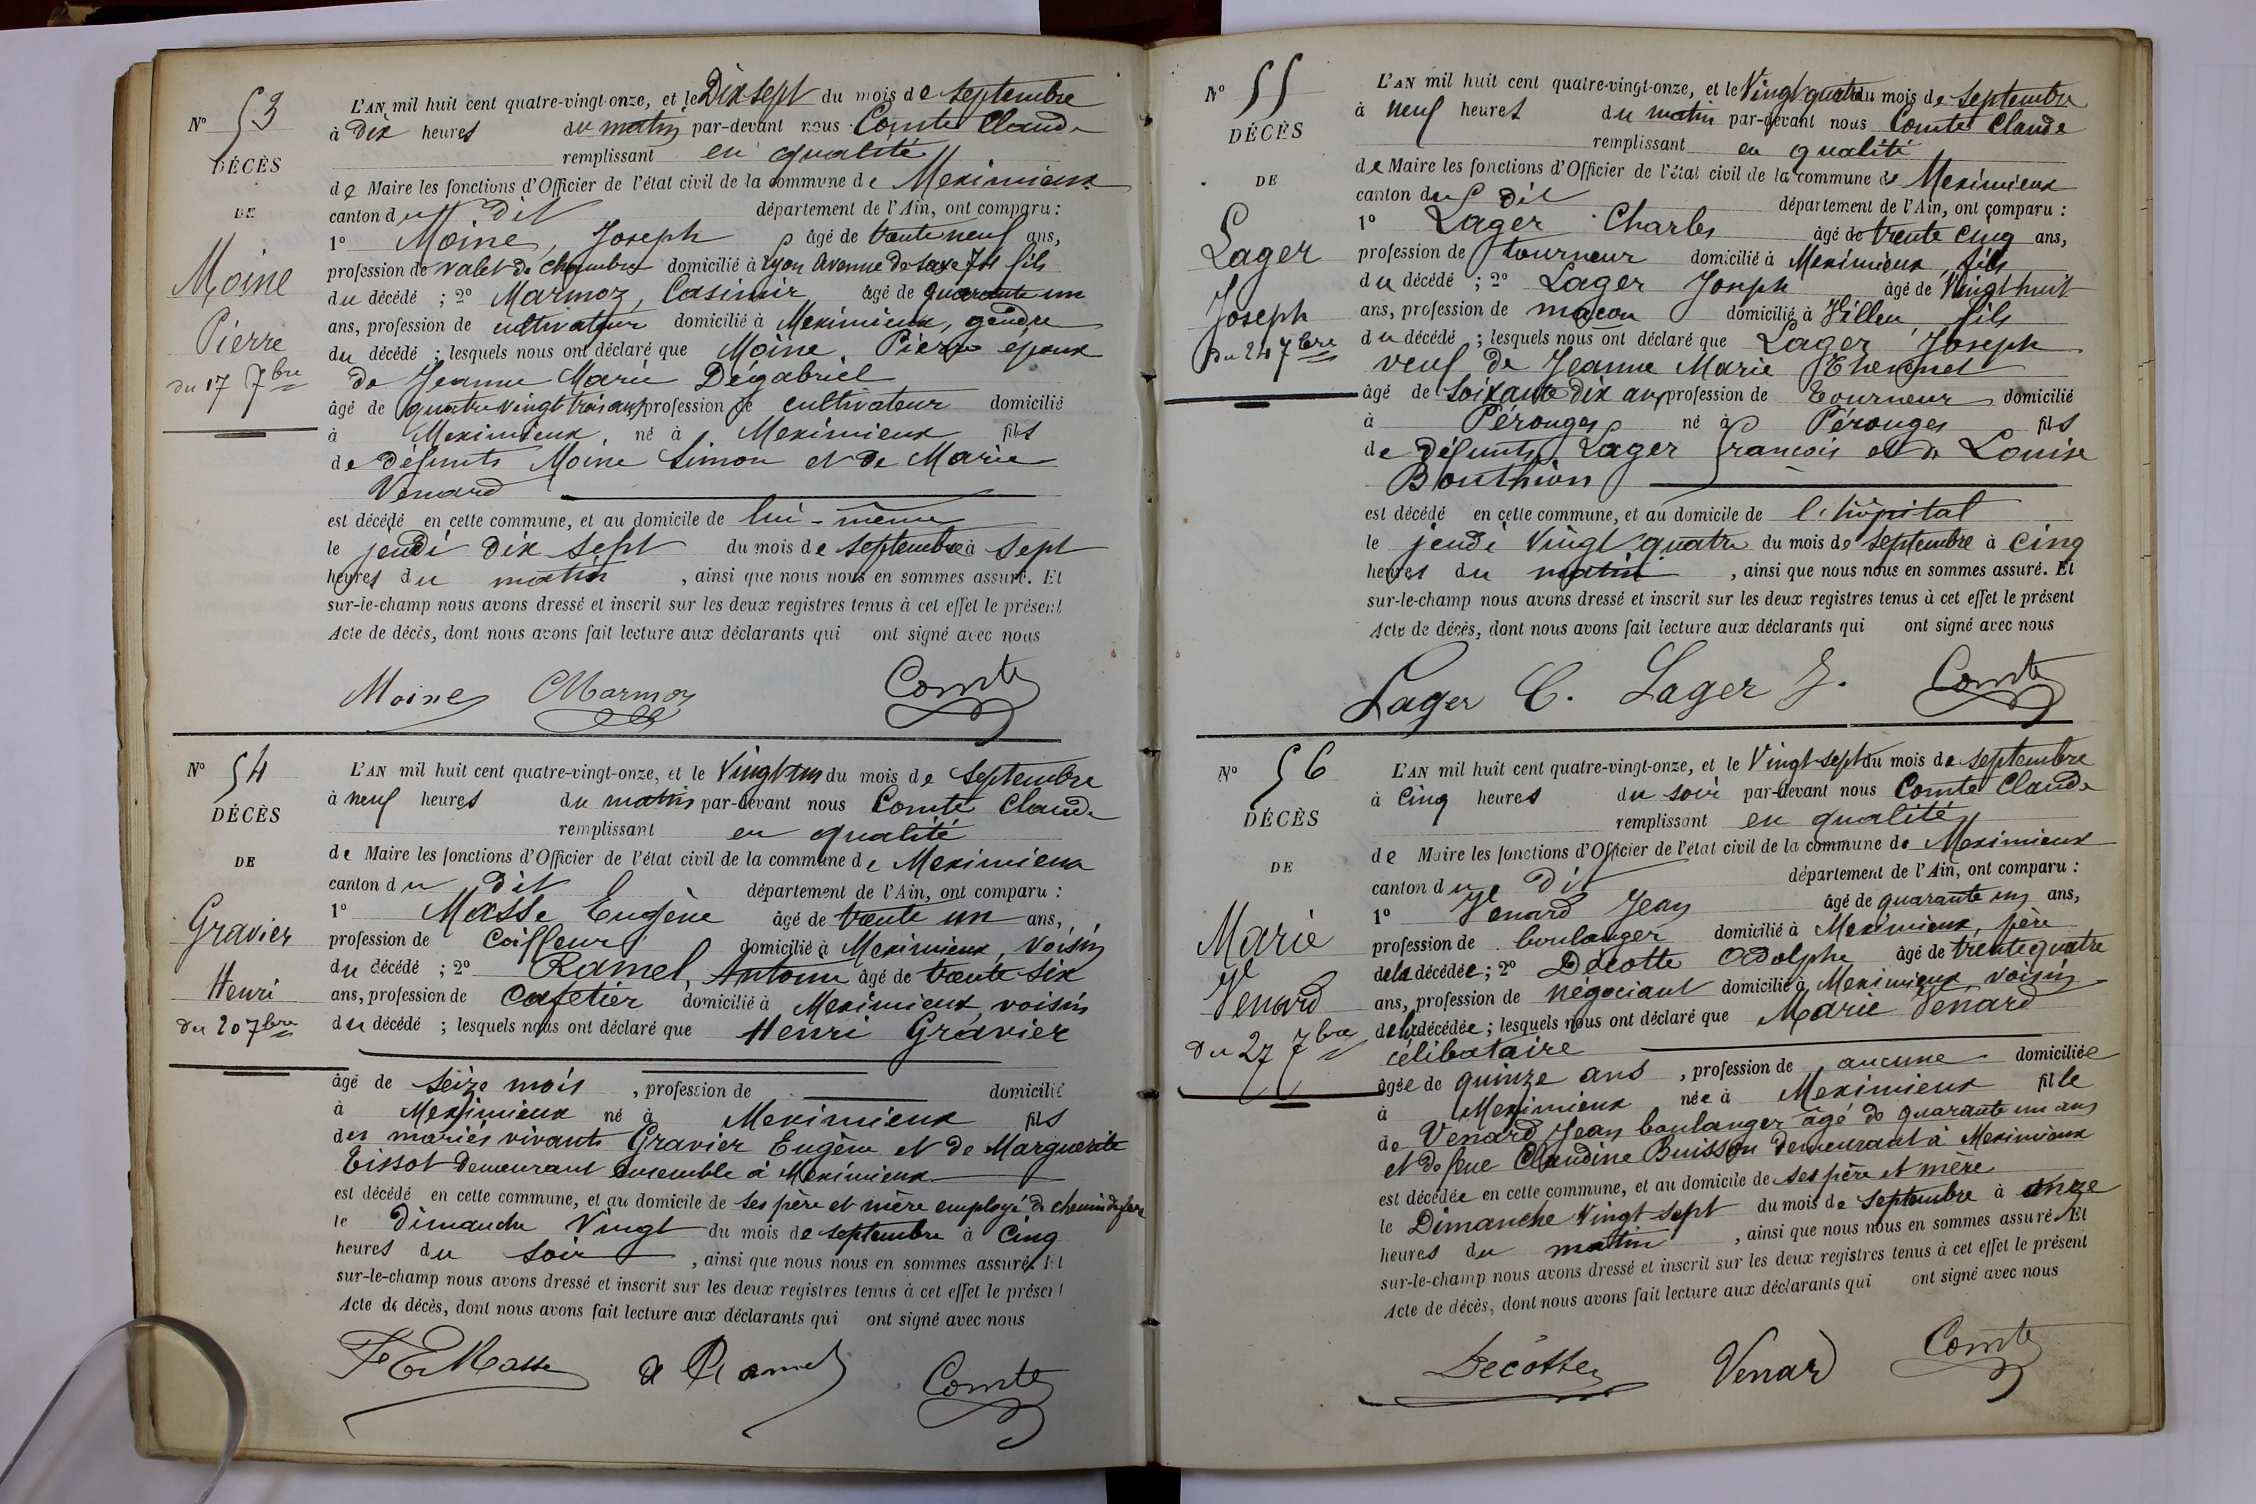 N° 53
DÉCÈS
DE
Moine
Pierre
du 17 7bre
L'AN mil huit cent quatre-vingt-onze, et le Dix sept du mois de septembre
à Dix heures du matin par-devant nous Comte Claude
remplissant en qualité
de Maire les fonctions d'Officier de l'état civil de la commune de Meximieux
canton du dit département de l'Ain, ont comparu :
1° Moine, Joseph âgé de trente neuf ans,
profession de valet de chambre domicilié à Lyon avenue de Saxe 74 fils
du décédé ; 2° Marmoz, Casimir âgé de quarante un
ans, profession de cultivateur domicilié à Meximieux, gendre
du décédé ; lesquels nous ont déclaré que Moine, Pierre epoux
de Jeanne Marie Dégabriel
âgé de quatre vingt trois ans, profession de cultivateur domicilié
à Meximieux, né à Meximieux fils
de défunts Moine Simon et de Marie
Venard
est décédé en cette commune, et au domicile de lui-même
le jeudi dix sept du mois de septembre à sept
heures du matin, ainsi que nous nous en sommes assuré. Et
sur-le-champ nous avons dressé et inscrit sur les deux registres tenus à cet effet le présent
Acte de décès, dont nous avons fait lecture aux déclarants qui ont signé avec nous
Moine CMarmoz Comte
N° 54
DÉCÈS
DE
Gravier
Henri
du 20 7bre
L'AN mil huit cent quatre-vingt-onze, et le Vingt un du mois de septembre
à neuf heures du matin par-devant nous Comte Claude
remplissant en qualité
de Maire les fonctions d'Officier de l'état civil de la commune de Meximieux
canton du dit département de l'Ain, ont comparu :
1° Masse Eugène âgé de trente un ans,
profession de Coiffeur domicilié à Meximieux, voisin
du décédé ; 2° Ramel, Antoine âgé de trente six
ans, profession de Cafetier domicilié à Meximieux, voisin
du décédé ; lesquels nous ont déclaré que Henri Gravier
âgé de seize mois, profession de domicilié
à Meximieux né à Meximieux fils
des mariés vivants Gravier Eugène et de Marguerite
Tissot demeurant ensemble à Meximieux
est décédé en cette commune, et au domicile de ses père et mère employé de chemin de fer
le dimanche Vingt du mois de septembre à Cinq
heures du soir, ainsi que nous nous en sommes assuré. Et
sur-le-champ nous avons dressé et inscrit sur les deux registres tenus à cet effet le présent
Acte de décès, dont nous avons fait lecture aux déclarants qui ont signé avec nous
Masse a Ramel Comte
N° 55
DÉCÈS
DE
Lager
Joseph
Du 24 7bre
L'AN mil huit cent quatre-vingt-onze, et le Vingt quatre du mois de septembre
à neuf heures du matin par-devant nous Comte Claude
remplissant en qualité
de Maire les fonctions d'Officier de l'état civil de la commune de Meximieux
canton du dit département de l'Ain, ont comparu :
1° Lager Charles âgé de trente cinq ans,
profession de tourneur domicilié à Meximieux, fils
du décédé ; 2° Lager Joseph âgé de Vingt huit
ans, profession de maçon domicilié à Villeu, fils
du décédé ; lesquels nous ont déclaré que Lager Joseph
veuf de Jeanne Marie
âgé de soixante dix ans, profession de Tourneur domicilié
à Pérouges né à Pérouges fils
de défunts Lager François et de Louise
Bouthion
est décédé en cette commune, et au domicile de l'hôpital
le jeudi Vingt quatre du mois de septembre à cinq
heures du matin, ainsi que nous nous en sommes assuré. Et
sur-le-champ nous avons dressé et inscrit sur les deux registres tenus à cet effet le présent
Acte de décès, dont nous avons fait lecture aux déclarants qui ont signé avec nous
Lager C. Lager J. Comte
N° 56
DÉCÈS
DE
Marie
Venard
Du 27 7bre
L'AN mil huit cent quatre-vingt-onze, et le Vingt-sept du mois de septembre
à Cinq heures du soir par-devant nous Comte Claude
remplissant en qualité
de Maire les fonctions d'Officier de l'état civil de la commune de Meximieux
canton du dit département de l'Ain, ont comparu :
1° Venard Jean âgé de quarante un ans,
profession de boulanger domicilié à Meximieux, père
de la décédée ; 2° Décotte Adolphe âgé de trente quatre
ans, profession de négociant domicilié à Meximieux, voisin
de la décédée ; lesquels nous ont déclaré que Marie Venard
célibataire
âgée de quinze ans, profession de aucune domiciliée
à Meximieux née à Meximieux fille
de Venard Jean boulanger âgé de quarante un ans
et de feue Claudine Buisson demeurant à Meximieux
est décédée en cette commune, et au domicile de ses père et mère
le Dimanche Vingt sept du mois de septembre à onze
heures du matin, ainsi que nous nous en sommes assuré. Et
sur-le-champ nous avons dressé et inscrit sur les deux registres tenus à cet effet le présent
Acte de décès, dont nous avons fait lecture aux déclarants qui ont signé avec nous
Decotte Venard Comte